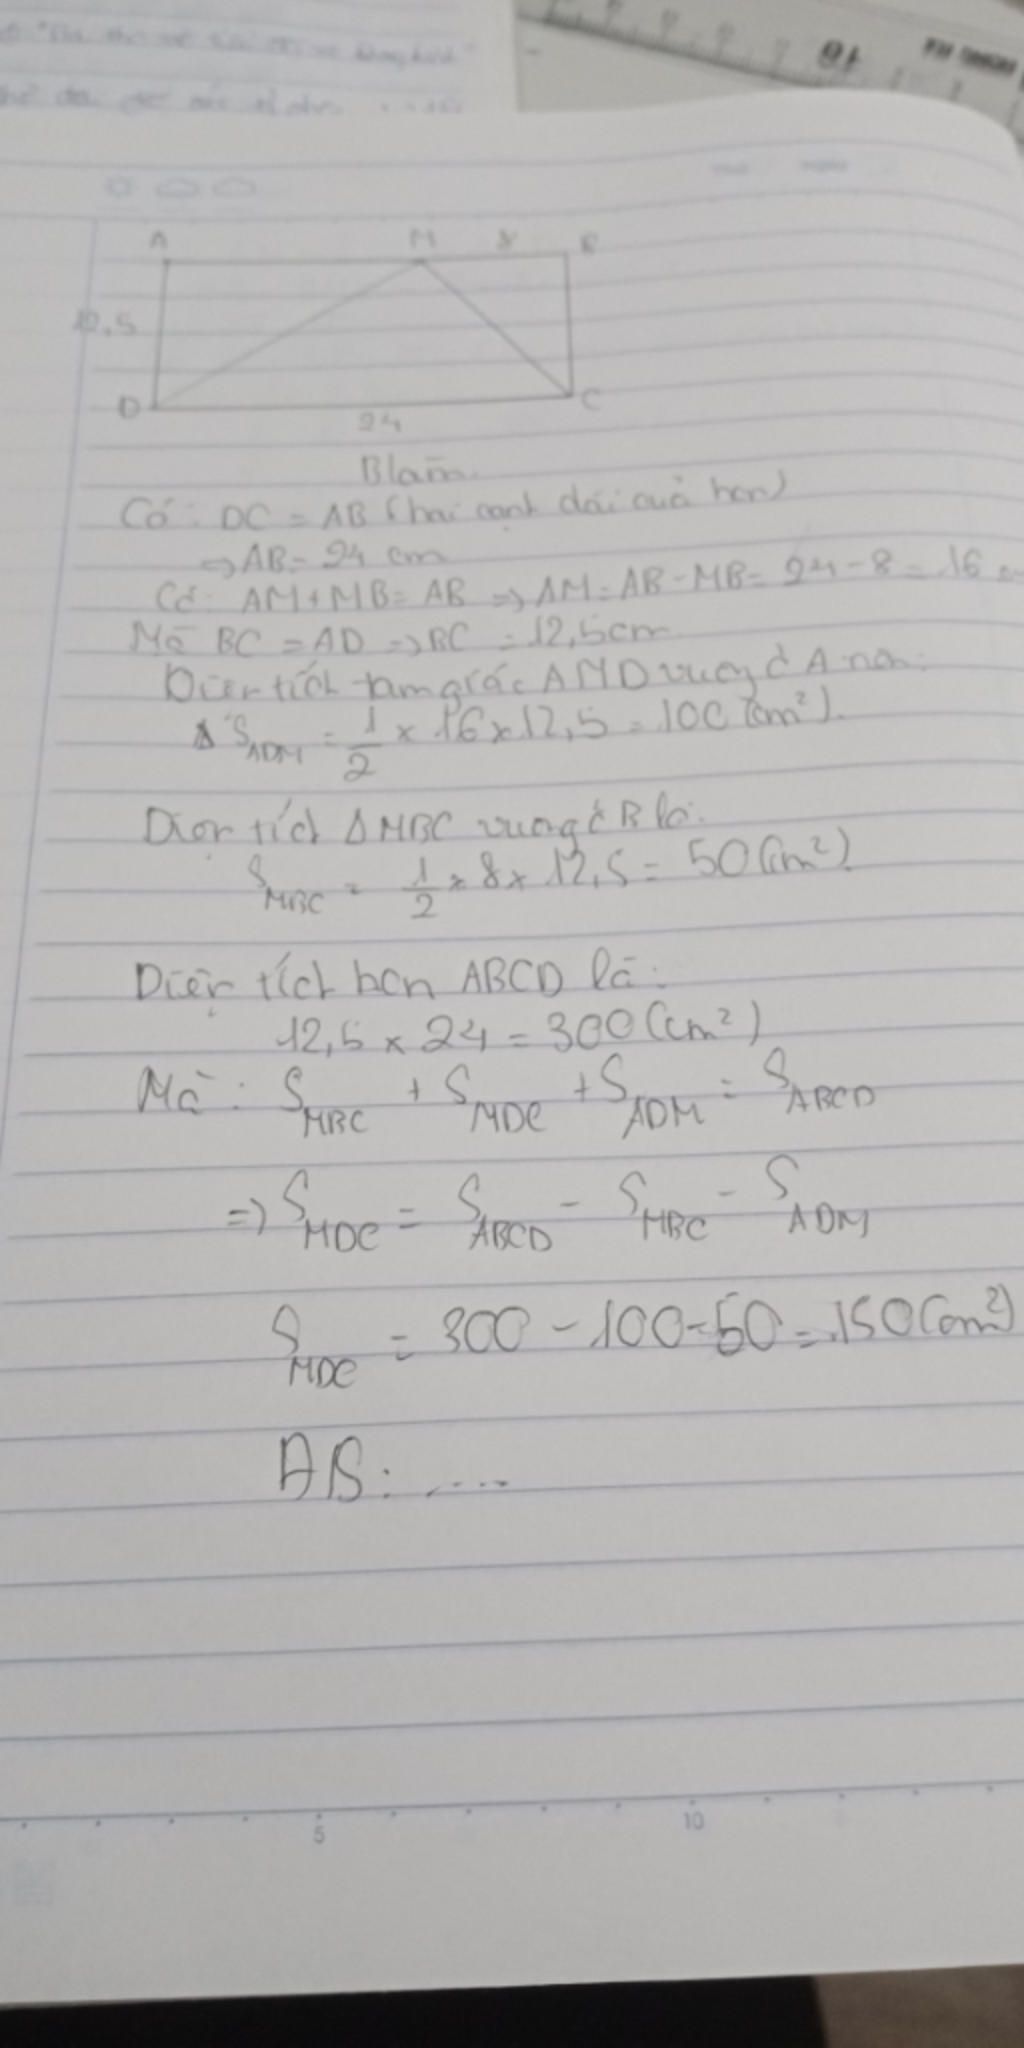 A M 8 B
12,5
D C
24
Blàm.
Có: DC = AB (hai cạnh dài của hcn)
=> AB = 24 cm
Có: AM + MB = AB => AM = AB - MB = 24 - 8 = 16
Mà BC = AD => BC = 12,5cm
Diện tích tam giác AMD vuông ở A
S ADM = 1/2 x 16 x 12,5 = 100 (cm²).
Diện tích Δ MBC vuông ở B là:
S MBC = 1/2 x 8 x 12,5 = 50 (cm²)
Diện tích hcn ABCD là:
12,5 x 24 = 300 (cm²)
Mà: S MBC + S MDC + S ADM = S ABCD
=> S MDC = S ABCD - S MBC - S ADM
S MDC = 300 - 100 - 50 = 150 (cm²)
ĐS: ....
5 10